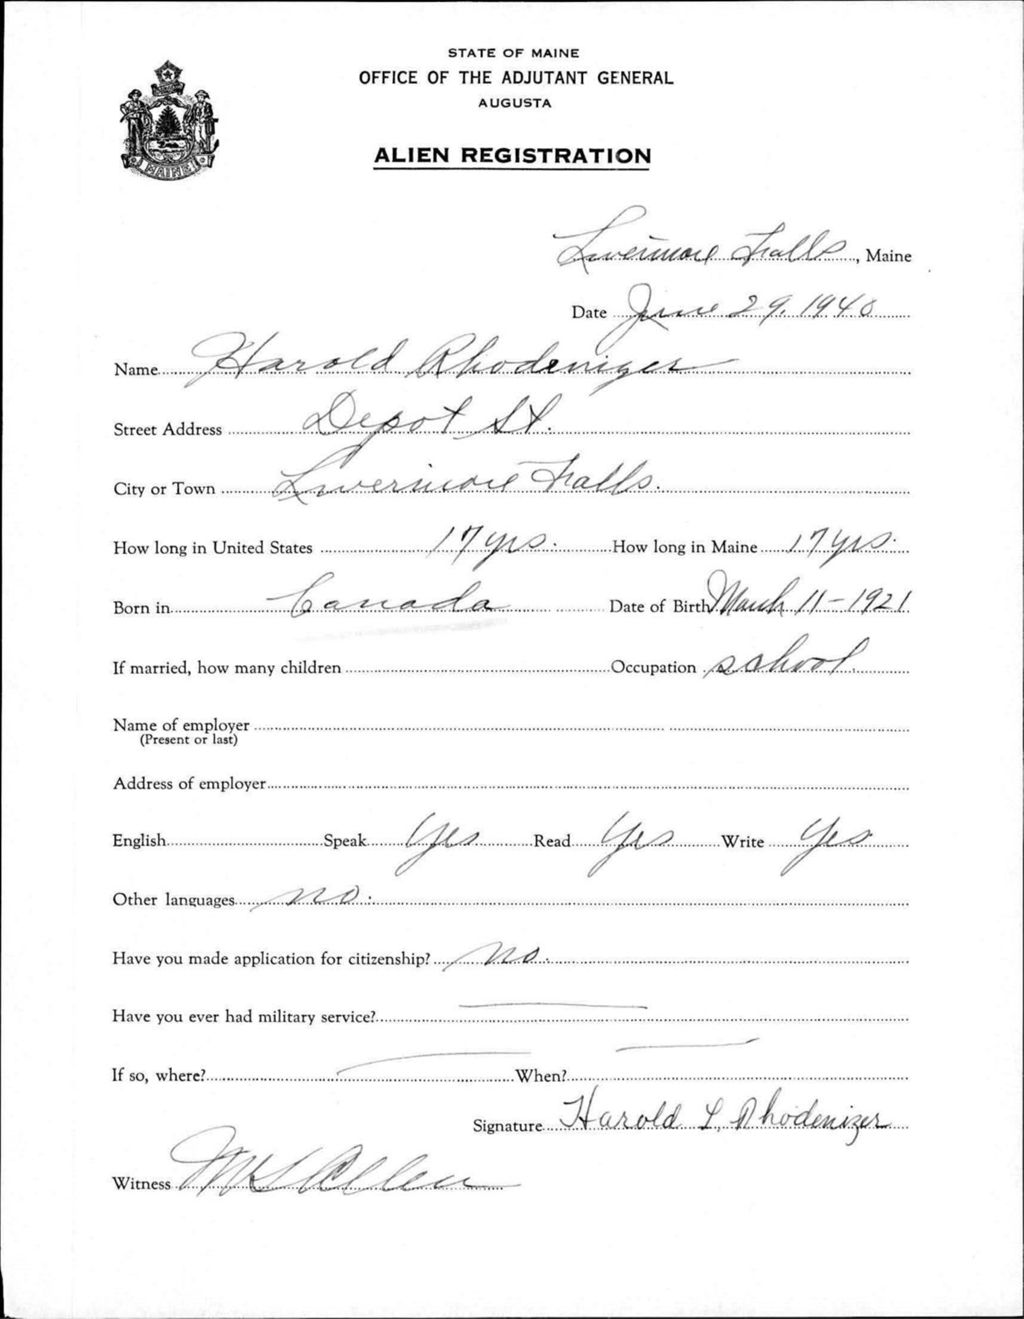 STATE OF MAINE
OFFICE OF THE ADJUTANT GENERAL
AUGUSTA
ALIEN REGISTRATION
MAINE
Livermore Falls, Maine
Date June 29, 1940
Name Harold Rhodenizer
Street Address Depot St.
City or Town Livermore Falls.
How long in United States 17 yrs. How long in Maine 17 yrs.
Born in Canada Date of Birth March 11-1921
If married, how many children Occupation school.
Name of employer
(Present or last)
Address of employer
English Speak Yes Read Yes Write Yes
Other languages no.
Have you made application for citizenship? no.
Have you ever had military service?
If so, where? When?
Signature Harold L. Rhodenizer
Witness Allen